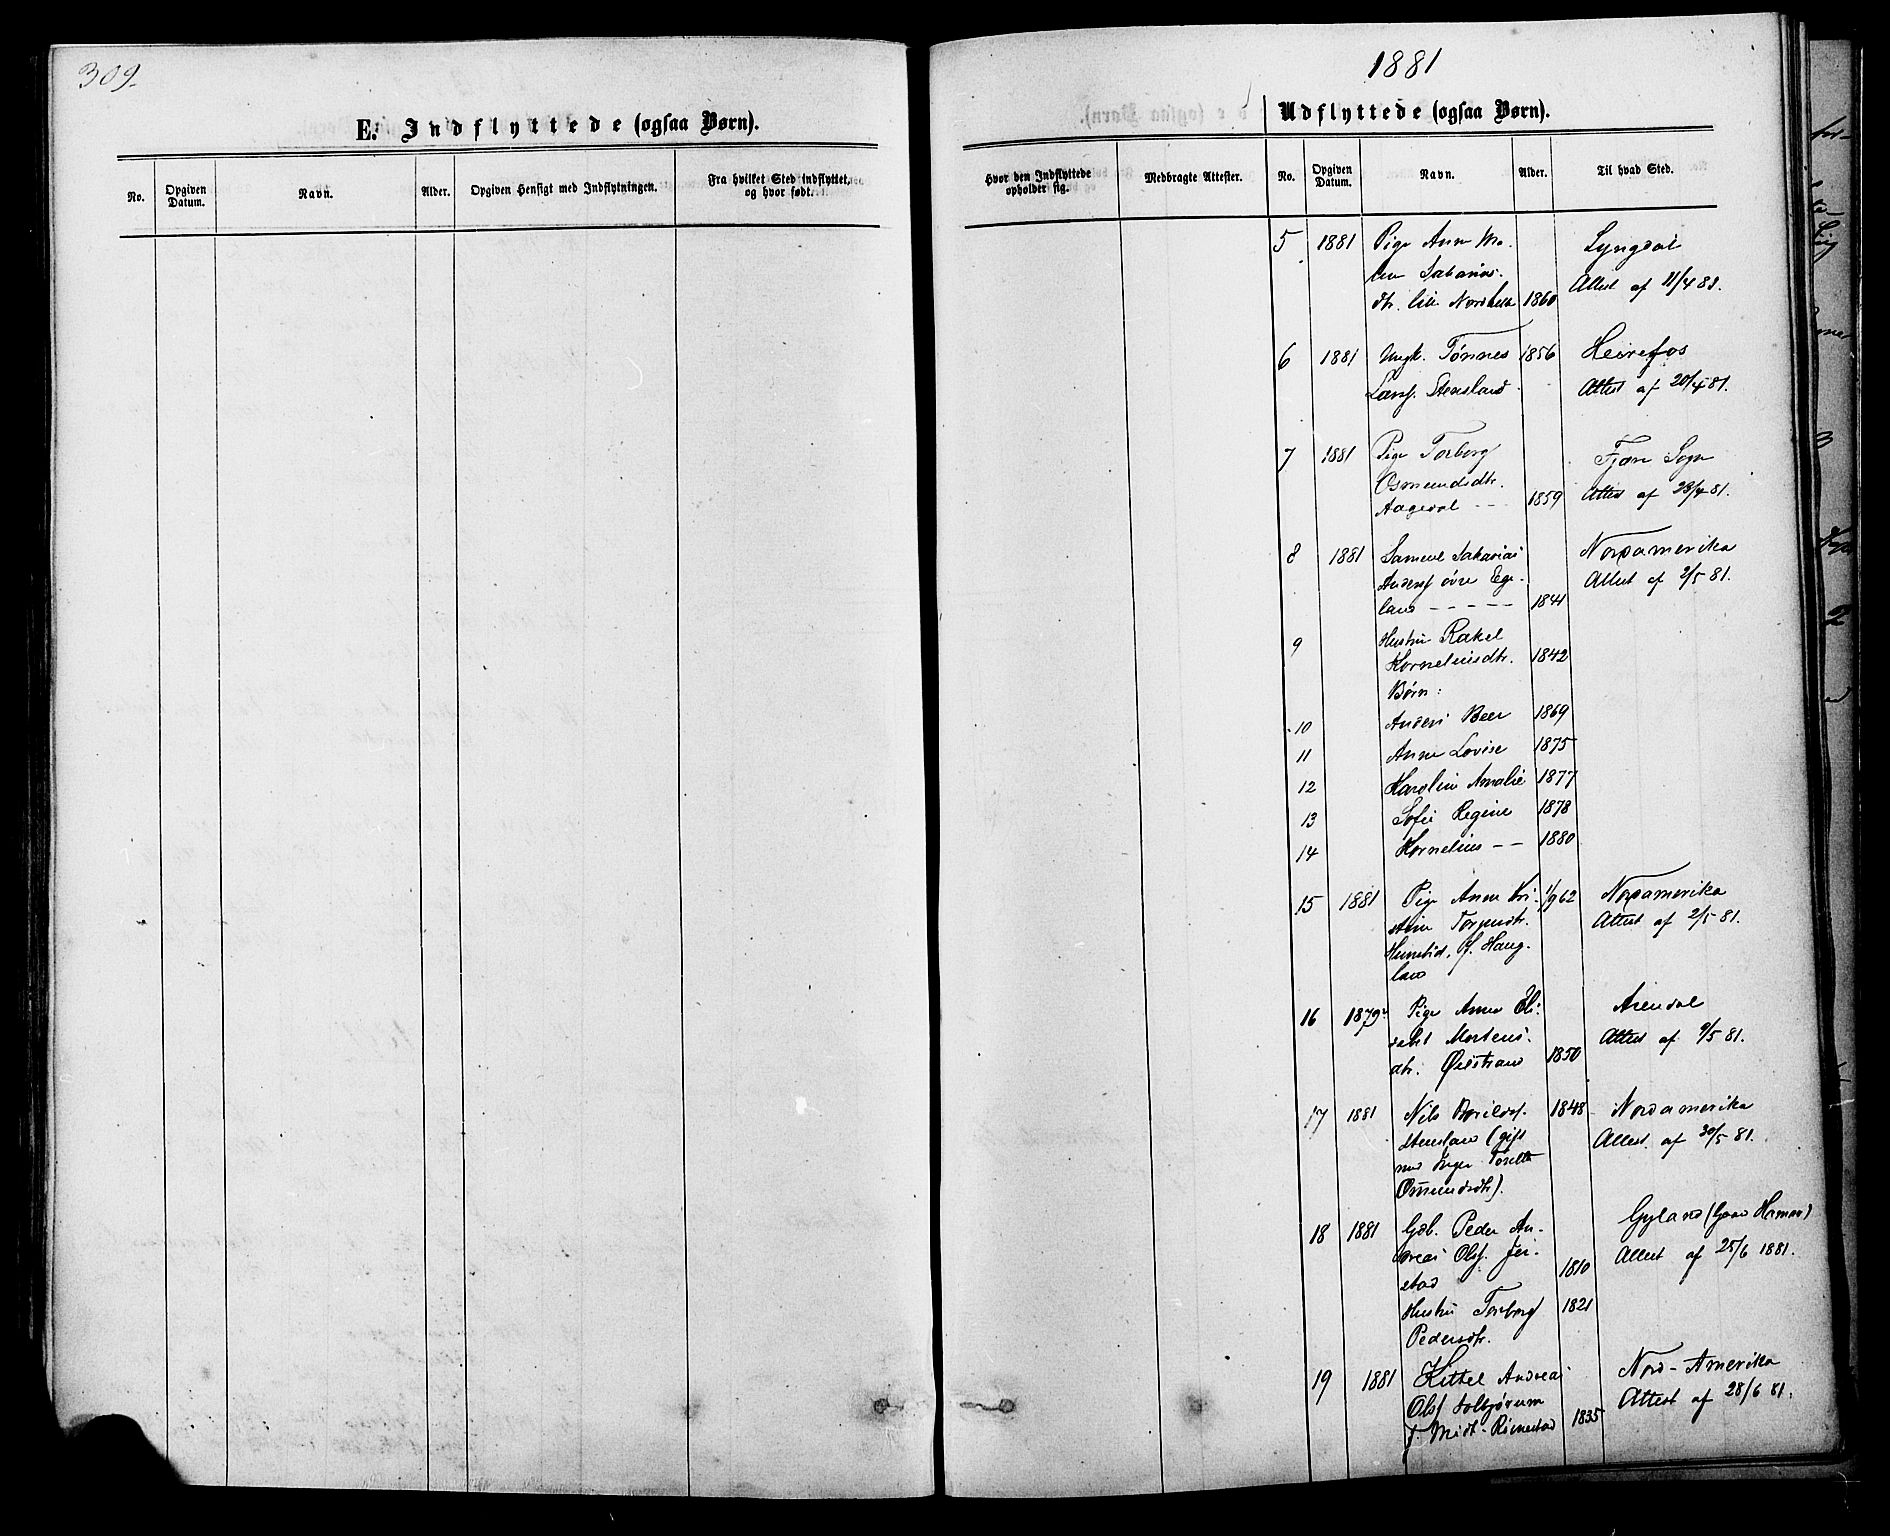 309.
1881
E. Indflyttede (ogsaa Børn).
No. Opgiven Datum. Navn. Alder. Opgiven Hensigt med Indflytningen. Fra hvilket Sted indflyttet, og hvor født.
Udflyttede (ogsaa Børn).
Hvor den Indflyttede opholder sig. Medbragte Attester. No. Opgiven Datum. Navn. Alder. Til hvad Sted.
5 1881 Pige Anne Ma- Lyngdal
Attest af 11/4 81.
dtr. lille 1860
6 1881 Ungk. Tønnes 1856 Heirefos
Larsf. Steensland Attest af 20/4 81.
7 1881 Pige Torborg Fjære Sogn
Osmundsdtr. Attest af 23/4 81.
Aagedal - - 1859
8 1881 Samuel Sakarias Nordamerika
Andersf øvre Ege- Attest af 2/5 81.
land - - - - - 1841
9 Hustru Rakel
Korneliusdtr. 1842
Børn:
10 Anders Beer 1869
11 Anne Lovise 1875
12 Karoline Amalie 1877
13 Sofie Regine 1878
14 Kornelius - - 1880
15 1881 Pige Anne Kri- 1/9 62 Nordamerika
stine Attest af 2/5 81.
Haug-
land
16 1879 Pige Anne Eli- Arendal
sabet Mortens- Attest af 9/5 81.
dtr. Øilstrand 1850
17 1881 Nils 1848 Nordamerika
Stensland (gift Attest af 30/5 81.
med Inger Torette
Omundsdtr).
18 1881 Gdb. Peder An- Gyland (Gaard Hamar)
dreas Olsf. Jer- Attest af 25/6 1881.
stad 1810
Hustru Torborg 1821
Pedersdtr.
19 1881 Kittel Andreas Nord-Amerika
Olsf Solbjørum Attest af 28/6 81.
f. Midt-Rimestad 1835